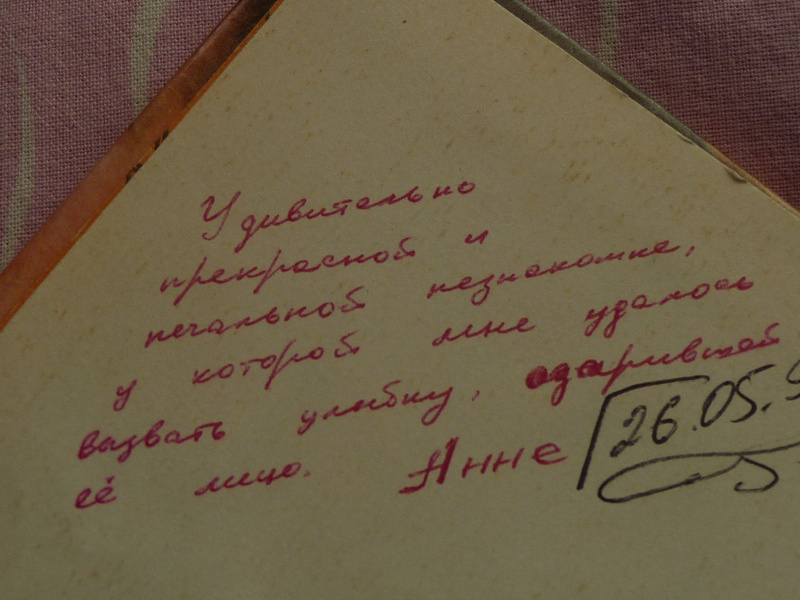 Удивительно
прекрасной и
печальной незнакомке,
у которой мне удалось
вызвать улыбку, озарившей
её лицо. Анне
26.05.9